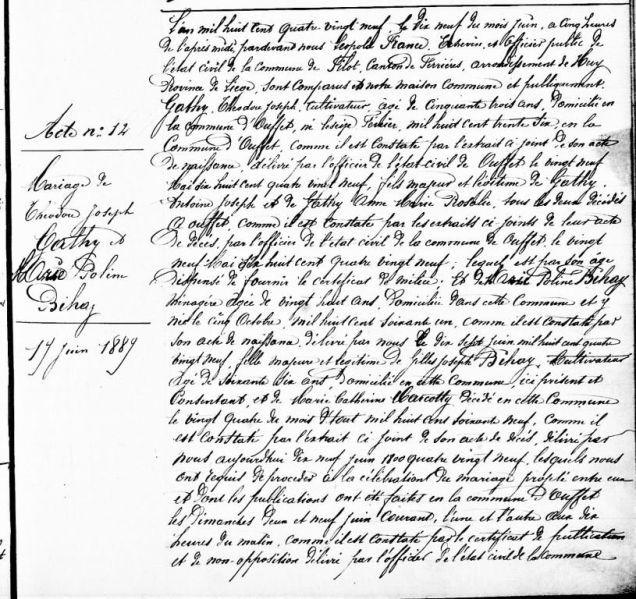 Acte n° 12
Mariage de
Theodore Joseph
Gathy et
Marie Poline
Bihay
17 juin 1889
L'an mil huit cent quatre vingt neuf, le dix neuf du mois juin, a cinq heures
de l'après midi, pardevant nous Léopold France, Echevin, et Officier public de
l'état civil de la commune de Filot, Canton de Ferrières, arrondissement de Huy
Province de Liège, sont comparus en notre maison Commune et publiquement
Gathy, Theodore Joseph, Cultivateur, agé de Cinquante trois ans, Domicilié en
la Commune d'Ouffet, né le seize Février, mil huit cent trente six, en la
Commune d'Ouffet, comme il est Constaté par l'extrait ci joint de son acte
de naissance, délivré par l'officier de l'état civil de Ouffet le vingt neuf
Mai dix huit cent quatre vingt neuf, fils majeur et légitime de Gathy,
Antoine Joseph et de Gathy Anne Marie Rosalie, tous les deux décédés
a ouffet, comme il est Constaté par les extraits ci joints de leur acte
de décès, par l'officier de l'état civil de la commune de Ouffet, le vingt
neuf Mai dix huit cent quatre vingt neuf; lequel est par son age
dispensé de fournir le certificat de milice. Et de Marie Poline Bihay
menagère agée de vingt huit ans Domiciliée dans cette Commune et y
née le cinq Octobre, mil huit cent soixante un, comme il est Constaté par
son acte de naissance, délivré par nous le dix sept juin mil huit cent quatre
vingt neuf, fille majeure et legitime de Gilles Joseph Bihay, Cultivateur
agé de soixante dix ans, Domicilié en cette Commune, ici présent et
Consentant, et de Marie Catherine Marcotty décédée en cette Commune
le vingt quatre du mois d'Aout mil huit cent soixante neuf, comme il
est Constaté par l'extrait ci joint de son acte de décès, délivré par
nous aujourd'hui dix neuf juin 1800 quatre vingt neuf, lesquels nous
ont requis de proceder à la célébration du mariage projeté entre eux
et dont les publications ont été faites en la commune d'Ouffet
les Dimanches deux et neuf juin Courant, l'une et l'autre aux dix
heures du matin, comme il est Constaté par le certificat de publication
et de non-opposition délivré par l'officier de l'état civil de la commune